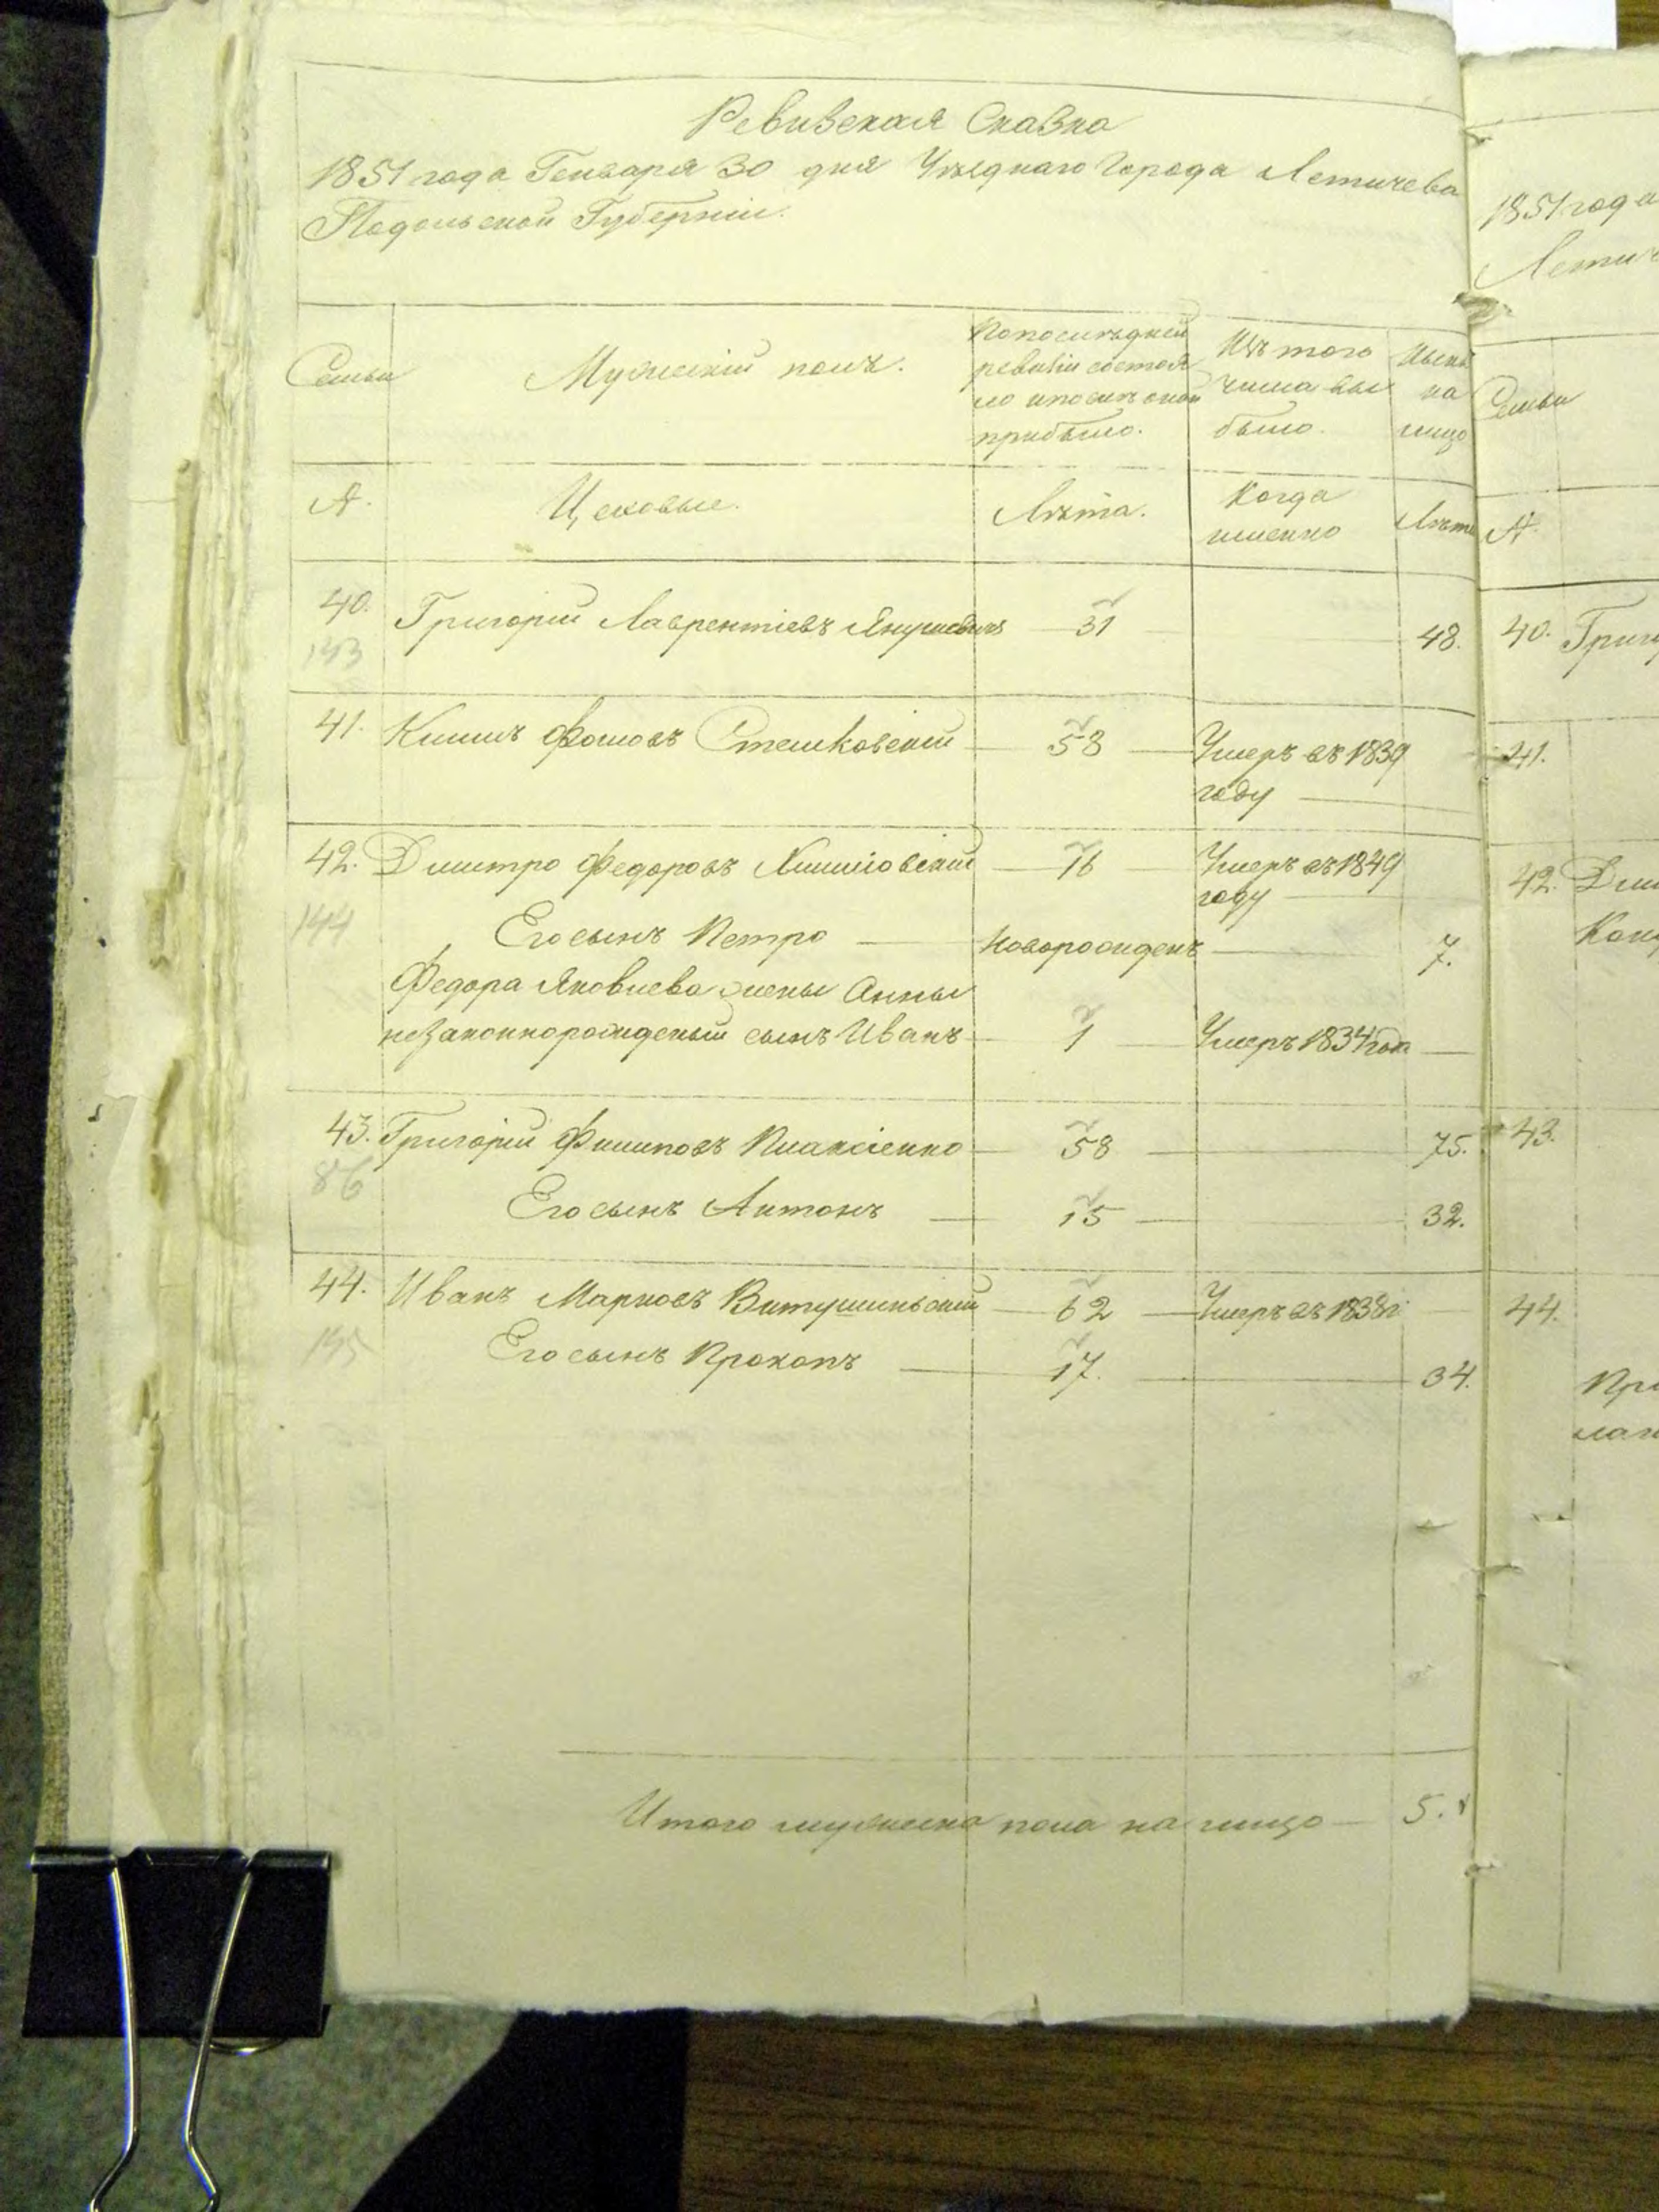 Ревизская Сказка
1851 года Генваря 30 дня Уѣзднаго Города Летичева
Подольской Губерніи.
Семьи
Мужескій полъ.
По послѣдней
ревизіи состоя
ло и послѣ оной
прибыло.
Изъ того
числа вы
было.
Нынѣ
на
лицо
№.
Цеховые.
Лѣта.
Когда
именно
Лѣта
40. Григорій Лаврентіевъ Янушевичъ 31 48.
143
41. Климъ Фомовъ Стешковскій 58 Умеръ въ 1839
году
42. Дмитро Федоровъ 16 Умеръ въ 1849
году
144
Его сынъ Петро новорожденъ 7.
Федора Яковлева жены Анны
незаконнорожденый сынъ Иванъ 1 Умеръ 1834 года
43. Григорій Филиповъ 58 75.
86
Его сынъ Антонъ 15 32.
44. Иванъ Марковъ 62 Умеръ въ 1838г
Его сынъ Прокопъ 17. 34.
Итого мужеска пола на лицо 5.
1851 года
Семьи
№.
40.
41.
42.
43.
44.